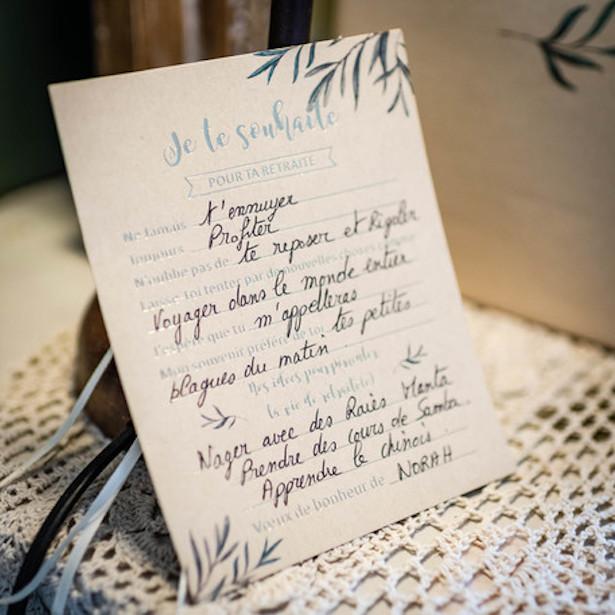 Je te souhaite
POUR TA RETRAITE
Ne jamais t'ennuyer
Toujours Profiter
N'oublie pas de te reposer et Rigoler
Laisse-toi tenter par de nouvelles choses comme
Voyager dans le monde entier
J'espère que tu m'appelleras
Mon souvenir préféré de toi tes petites
blagues du matin.
Mes idées pour pimenter
ta vie de retraité(e)
Nager avec des Raies Manta
Prendre des cours de Samba.
Apprendre le chinois.
Vœux de bonheur de NORAH